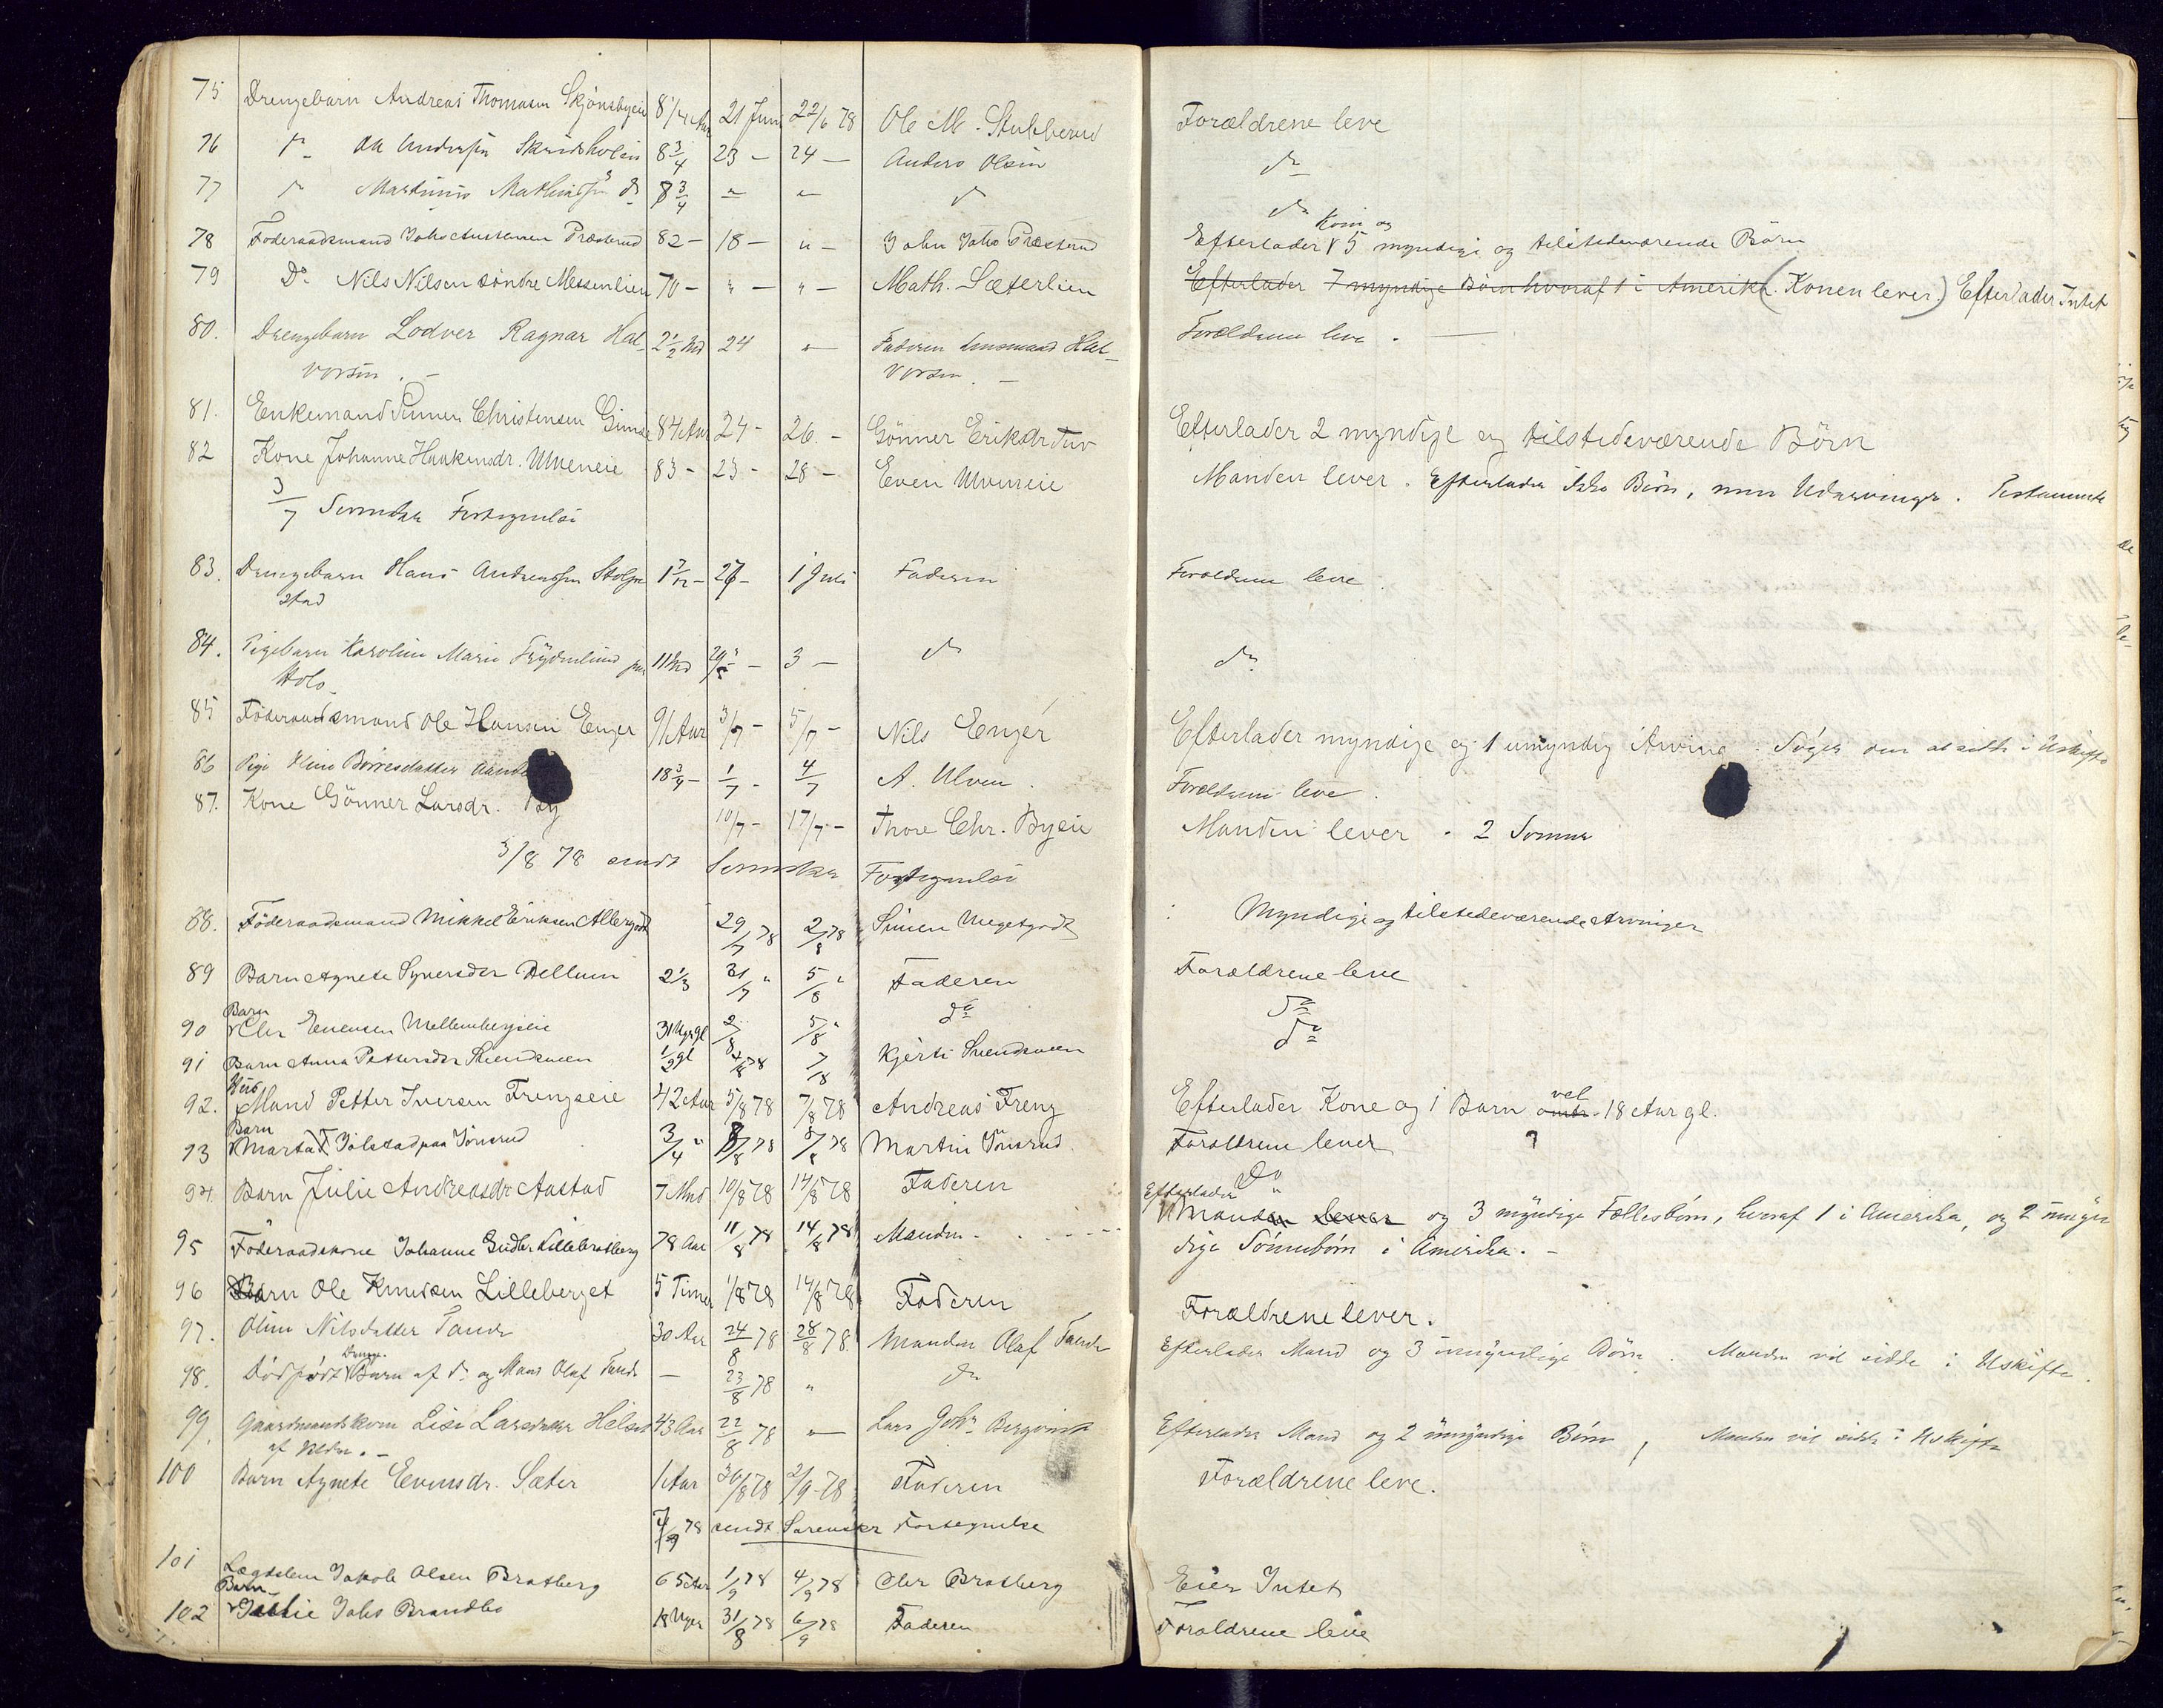 75 Drengebarn Andreas Thomasen Skjönsbyeie 8 1/4 Aar 21 Juni 22/6 78 Ole M. Stubberud Forældrene leve
76 do Ole Andersen 8 3/4 23 – 24 – Anders Olsen do
77 do Martinus Mathiassen do 8 3/4 " " do do
78 Föderaadsmand Johs Præsterud 82 – 18 – " – John Johs Præsterud Efterlader Kone og 5 myndige og tilstedeværende Börn
79 Do Nils Nilsen söndre Messenlien 70 – " – " – Math. Sæterlien Efterlader 7 myndige Börn hvoraf 1 i Amerika (Konen lever) Efterlader Intet
80. Drengebarn Lodver Ragnar Hal- 2 1/2 Md 24 " Faderen Lensmand Hal- Forældrene leve. —
vorsen. – vorsen. –
81. Enkemand Christensen 84 Aar 24 – 26. – Gönner Eriksdr Efterlader 2 myndige og tilstedeværende Börn
82 Kone Johanne Haakensdr. Ulveneie 83 – 23 – 28 – Even Ulveneie Manden lever. Efterlader ikke Börn, men Udarvinger. Testamente
3/7 Sorensk. Fortegnelse
83. Drengebarn Hans Andreassen Stolpe- 1 7/12 – 27 – 1 Juli Faderen Forældrene leve.
stad
84. Pigebarn Karoline Marie Frydenlund paa 11 Md – 3 – do do
Holo
85 Föderaadsmand Ole Hansen Enger 91 Aar 3/7 – 5/7 – Nils Enger Efterlader myndige og 1 umyndig Arving. Söger om at sidde i Uskifte
86 Pige Börresdatter 18 3/4 – 1/7 – 4/7 A. Ulven. Forældrene leve.
87. Kone Gönner Larsdr. 10/7 – 17/7 – Thore Chr. Byeie Manden lever. 2 Sönner
3/8 78 sendt Sorensk. Fortegnelse
88. Föderaadsmand Mikkel Eriksen Allergodt 29/7 78 2/8 78 Simen Megetgodt Myndige og tilstedeværende Arvinger
89 Barn Agnete Syversdr Dellum 2 1/3 31/7 " 5/8 " Faderen Forældrene leve
90 Barn Chr Evensen Mellembergseie 3 Uger gl 2/8 5/8 " do do
91 Barn Anna Pettersdr Svendsveen 1/2 gl 4/8 78 7/8 Kjersti Svendsveen do
92. Husmand Petter Iversen Frengseie 42 Aar 5/8 78 7/8 78 Andreas Freng Efterlader Kone og 1 Barn vel omtr. 18 Aar gl.
93 Barn Martha Jolstad paa Jönsrud 3/4 " 8/8 78 8/8 78 Martin Jönsrud. Forældrene lever
94. Barn Julie Andreasdr Aastad 7 Mnd 10/8 78 14/8 78 Faderen Do
95 Föderaadskone Johanne Gudbr. Lillebratberg 78 Aar 11/8 78 14/8 78 Manden Efterlader Manden lever og 3 myndige Fællesbörn, hvoraf 1 i Amerika, og 2 myn-
dige Sönnebörn i Amerika. –
96 Barn Ole Knudsen Lilleberget 5 Timer 1/8 78 14/8 78 Faderen Forældrene lever.
97. Oline Nilsdatter Tande 30 Aar 24/8 78 28/8 78. Manden Olaf Tande Efterlader Mand og 3 umyndige Börn. Manden vil sidde i Uskifte.
98. Dödfödt Drenge Barn af do og Mand Olaf Tande — 23/8 78 " do
99. Gaardmandskone Lise Larsdatter Helstad 43 Aar 22/8 78 " Lars Johs Bergquist Efterlader Mand og 2 umyndige Börn, Manden vil sidde i Uskifte
af
100 Barn Agnete Evensdr. Sæter 1 Aar 30/8 78 2/9 – 78 Faderen Forældrene leve.
7/9 78 sendt Sorenskr Fortegnelse
101 Lægdslem Jakob Olsen Bratberg 65 Aar 1/9 78 4/9 78 Chr Bratberg Eier Intet
102 Barn Johs Brandbo 18 Uger 31/8 78 6/9 78 Faderen Forældrene leve